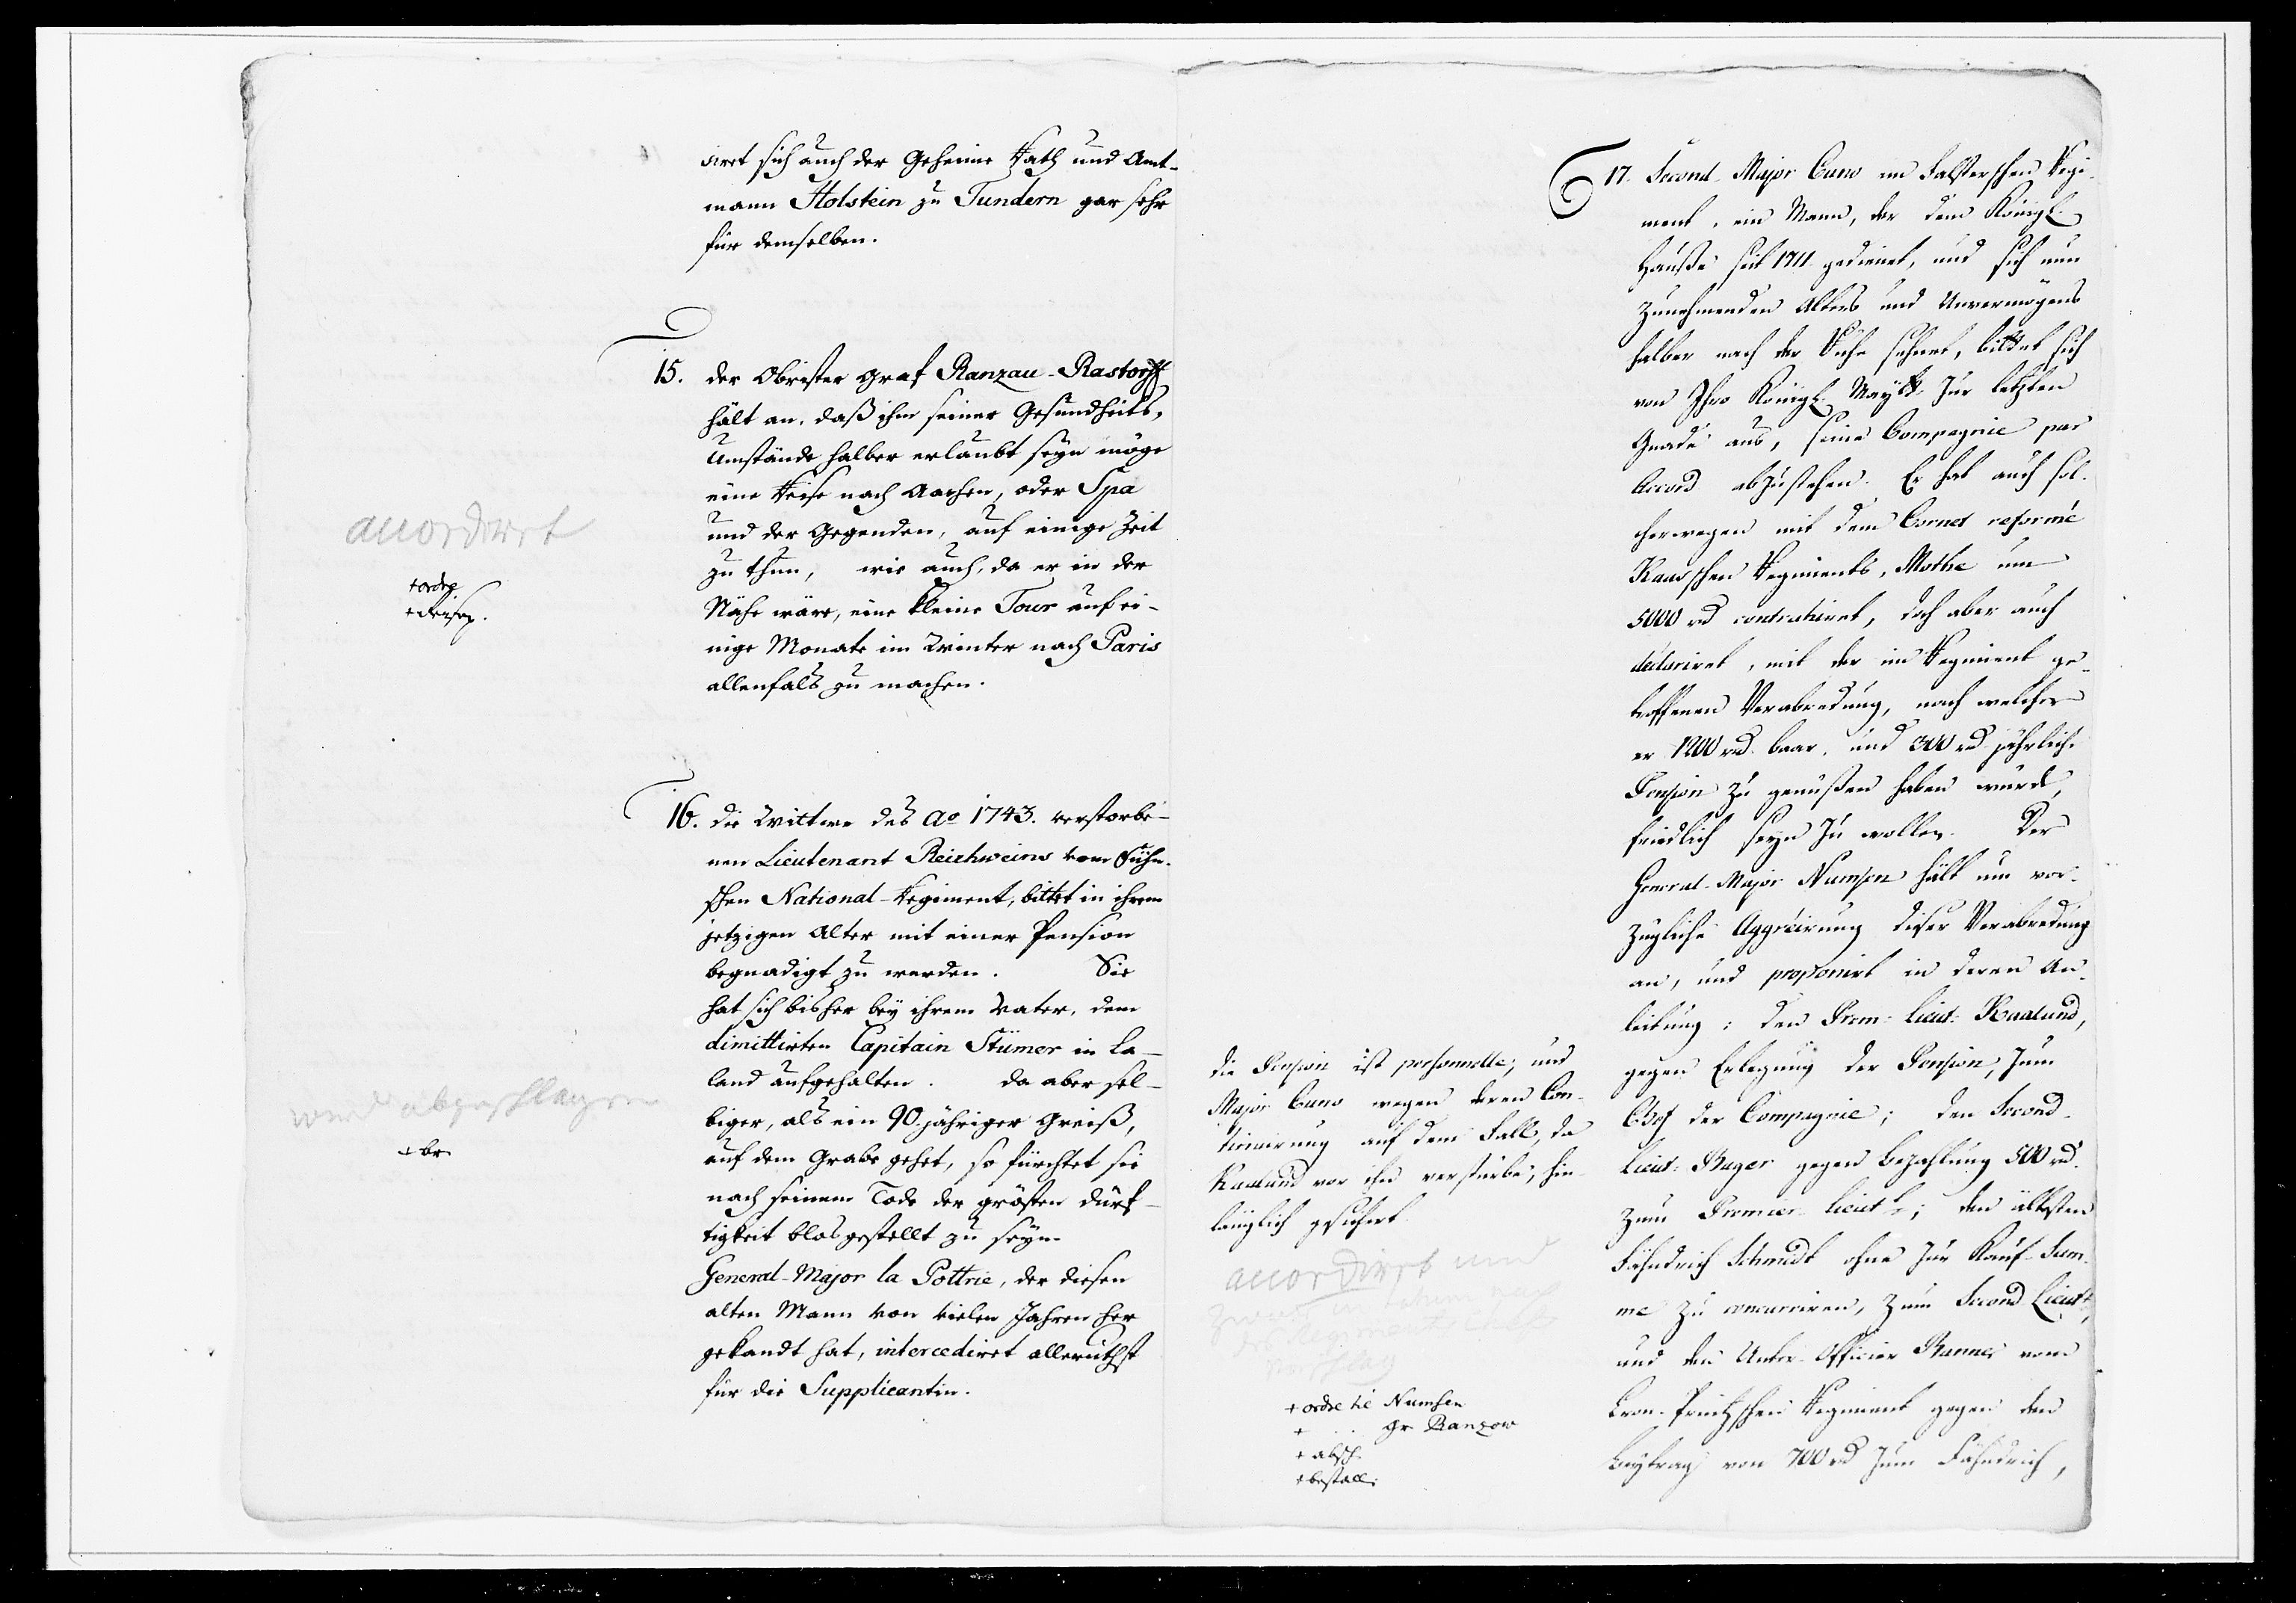 diret sich auch der Geheime Rath und Amt-
mann Holstein zu Tundern gar sehr
für demselben.
15. der Obrister Graf Ranzau-Rastorff
hält an, daß ihm seiner Gesundheits-
Umstände halber erlaubt seyn möge
eine Reise nach Aachen, oder Spa
und der Gegenden, auf einige Zeit
zu thun, wie auch, da er in der
Nähe wäre, eine kleine Tour auf ei-
nige Monate im Winter nach Paris
allenfals zu machen.
accordiret
+ordre
+Reisep.
16. die Wittwe des Ao 1743. verstorbe-
nen Lieutenant Reichweins vom Fühn-
schen National-Regiment, bittet in ihrem
jetzigen Alter mit einer Pension
begnadigt zu werden. Sie
hat sich bisher bey ihrem Vater, dem
dimittirten Capitain Stümer in La-
land aufgehalten. da aber sel-
biger, als ein 90.jähriger Greiß,
auf dem Grabe gehet, so fürchtet sie
nach seinem Tode der grösten Dürf-
tigkeit blos gestellt zu seyn.
General-Major la Pottrie, der diesen
alten Mann von vielen Jahren her
gekandt hat, intercediret alleruthst
für die Supplicantin.
wird abgeschlagen
+ br.
17. Second-Major Cuno im Falsterschen Regi-
ment, ein Mann, der dem Königl.
Hauße seit 1711 gedienet, und sich nun
zunehmenden Alters und Unvermögens
halber nach der Ruhe sehnet, bittet sich
von Ihro Königl. Maytt. zur letzten
Gnade aus, seine Compagnie par
Accord abzustehen. Er hat auch sol-
cherwegen mit dem Cornet reformé
Kaasschen Regiments, Mothe um
5000 rd contrahiret, doch aber auch
declariret, mit der im Regiment ge-
troffenen Verabredung, nach welcher
er 1200 rd. baar, und 300 rd jährlich
Pension zu genußen haben würde,
friedlich seyn zu wollen. Der
General-Major Numsen hält um vor-
zügliche Aggréirung dieser Verabredung
an, und proponirt in deren An-
leitung: den Prem: Lieut: Kaalund,
gegen Erlegung der Pension, zum
Chef der Compagnie; den Second-
Lieut: Bager gegen Bezahlung 500 rd.
zum Premier-Lieutt.; den ältesten
Fähndrich Schmidt ohne zur Kauf-Sum-
me zu concurriren, zum Second Lieutt,
und den Unter-Officier Banner vom
Cron-Printzschen Regiment gegen den
Beytrag von 700 rd zum Fähndrich,
die Pension ist personnelle, und
Major Cuno wegen deren Con-
tinuirung auf dem Fall, da
Kaalund vor ihm verstürbe, hin-
länglich gesichert.
accordiret und
+ ordre til Numsen
+ . . Gr. Ranzow
+ absch.
+ bestall.